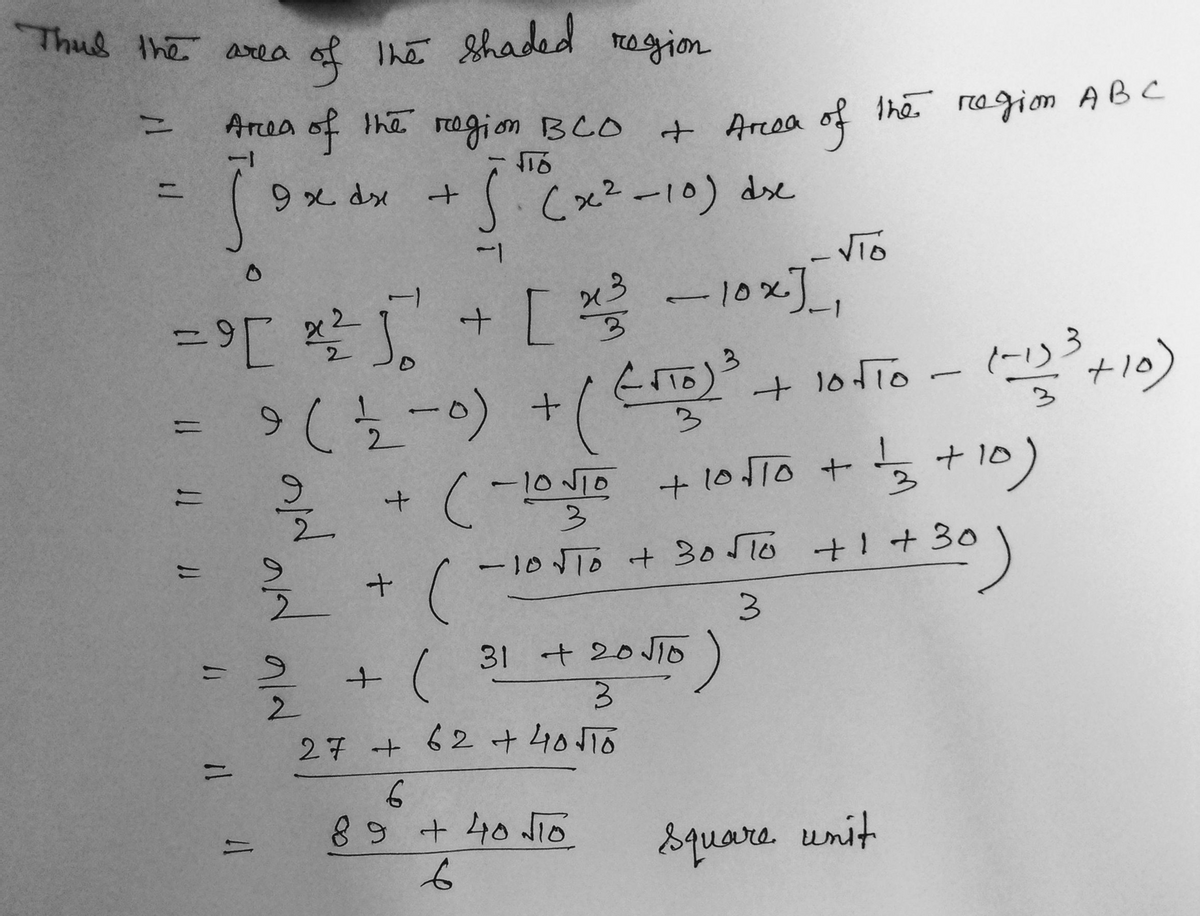 Thus the area of the shaded region
= Area of the region BCO + Area of the region ABC
= ∫₀⁻¹ 9x dx + ∫₋₁^(-√10) (x² - 10) dx
= 9[x²/2]₀⁻¹ + [x³/3 - 10x]₋₁^(-√10)
= 9(1/2 - 0) + ((-√10)³/3 + 10√10 - (-1)³/3 + 10)
= 9/2 + (-10√10/3 + 10√10 + 1/3 + 10)
= 9/2 + ((-10√10 + 30√10 + 1 + 30)/3)
= 9/2 + ((31 + 20√10)/3)
= (27 + 62 + 40√10)/6
= (89 + 40√10)/6 square unit